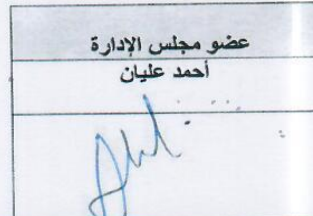 عضو مجلس الإدارة
أحمد عليان